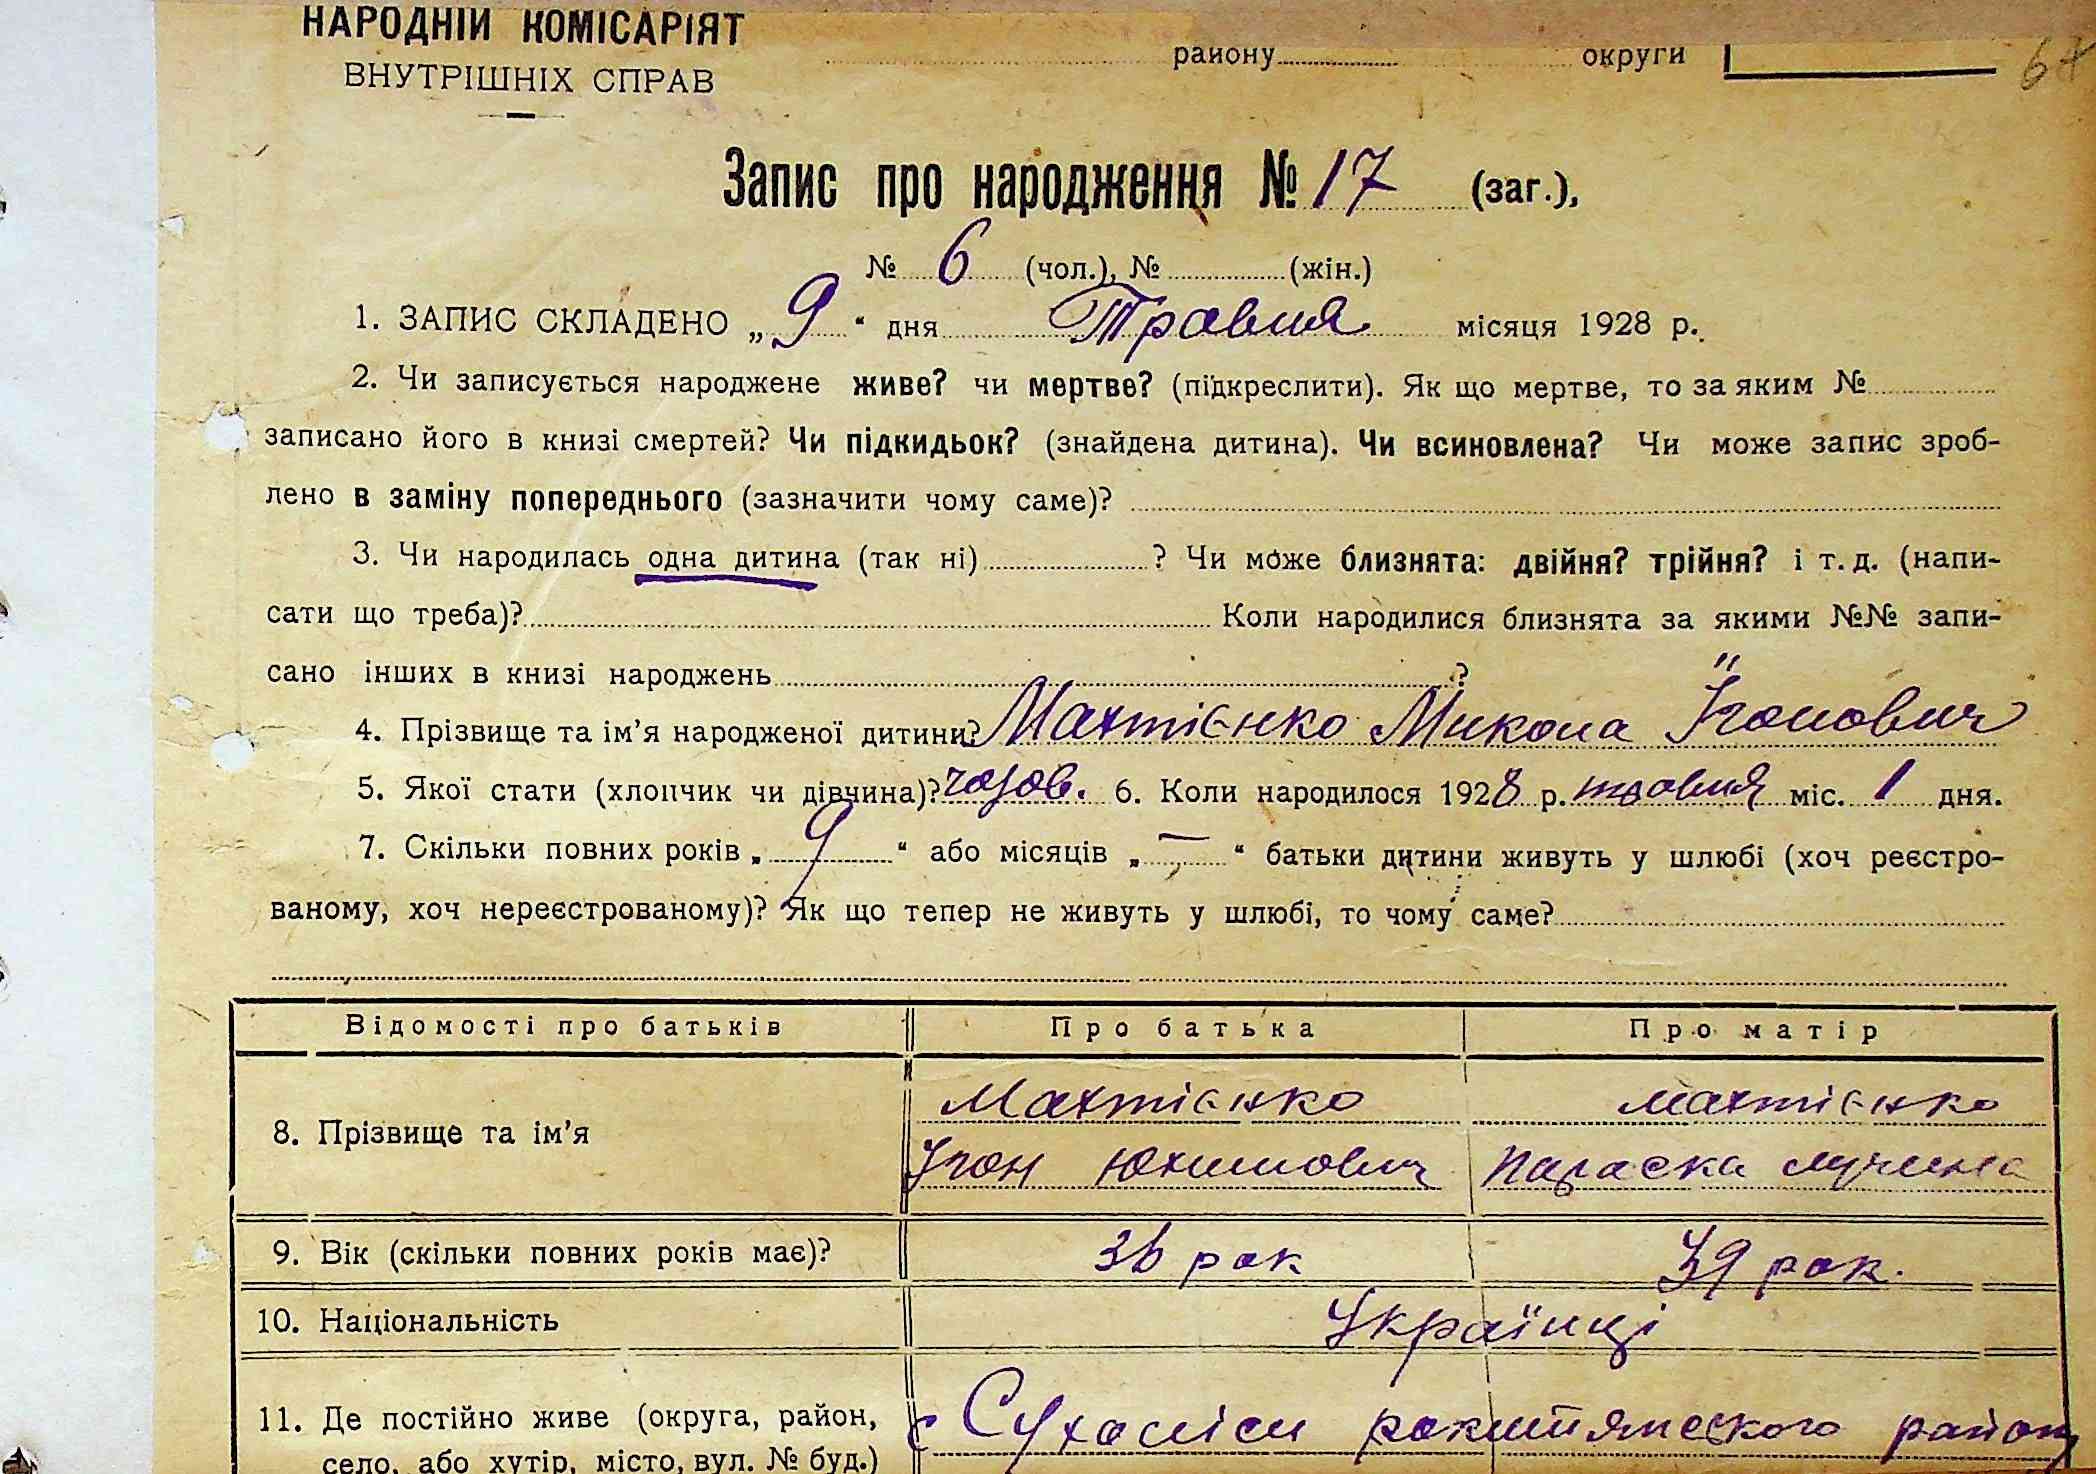 НАРОДНІЙ КОМІСАРІЯТ
ВНУТРІШНІХ СПРАВ
району округи
67
Запис про народження № 17 (заг.),
№ 6 (чол.), № (жін.)
1. ЗАПИС СКЛАДЕНО „9“ дня Травня місяця 1928 р.
2. Чи записується народжене живе? чи мертве? (підкреслити). Як що мертве, то за яким №
записано його в книзі смертей? Чи підкидьок? (знайдена дитина). Чи всиновлена? Чи може запис зроб-
лено в заміну попереднього (зазначити чому саме)?
3. Чи народилась одна дитина (так ні) ? Чи може близнята: двійня? трійня? і т. д. (напи-
сати що треба)? Коли народилися близнята за якими №№ запи-
сано інших в книзі народжень ?
4. Прізвище та ім’я народженої дитини? Махтієнко Микола
5. Якої стати (хлопчик чи дівчина)? 6. Коли народилося 1928 р. травня міс. 1 дня.
7. Скільки повних років „9“ або місяців „—“ батьки дитини живуть у шлюбі (хоч реєстро-
ваному, хоч нереєстрованому)? Як що тепер не живуть у шлюбі, то чому саме?
Відомості про батьків Про батька Про матір
Махтієнко Махтієнко
8. Прізвище та ім’я
Юхимович Параска
9. Вік (скільки повних років має)? 36 рок 39 рок.
10. Національність Українці
11. Де постійно живе (округа, район, с Сухоліси рокитянського району
село, або хутір, місто, вул. № буд.)